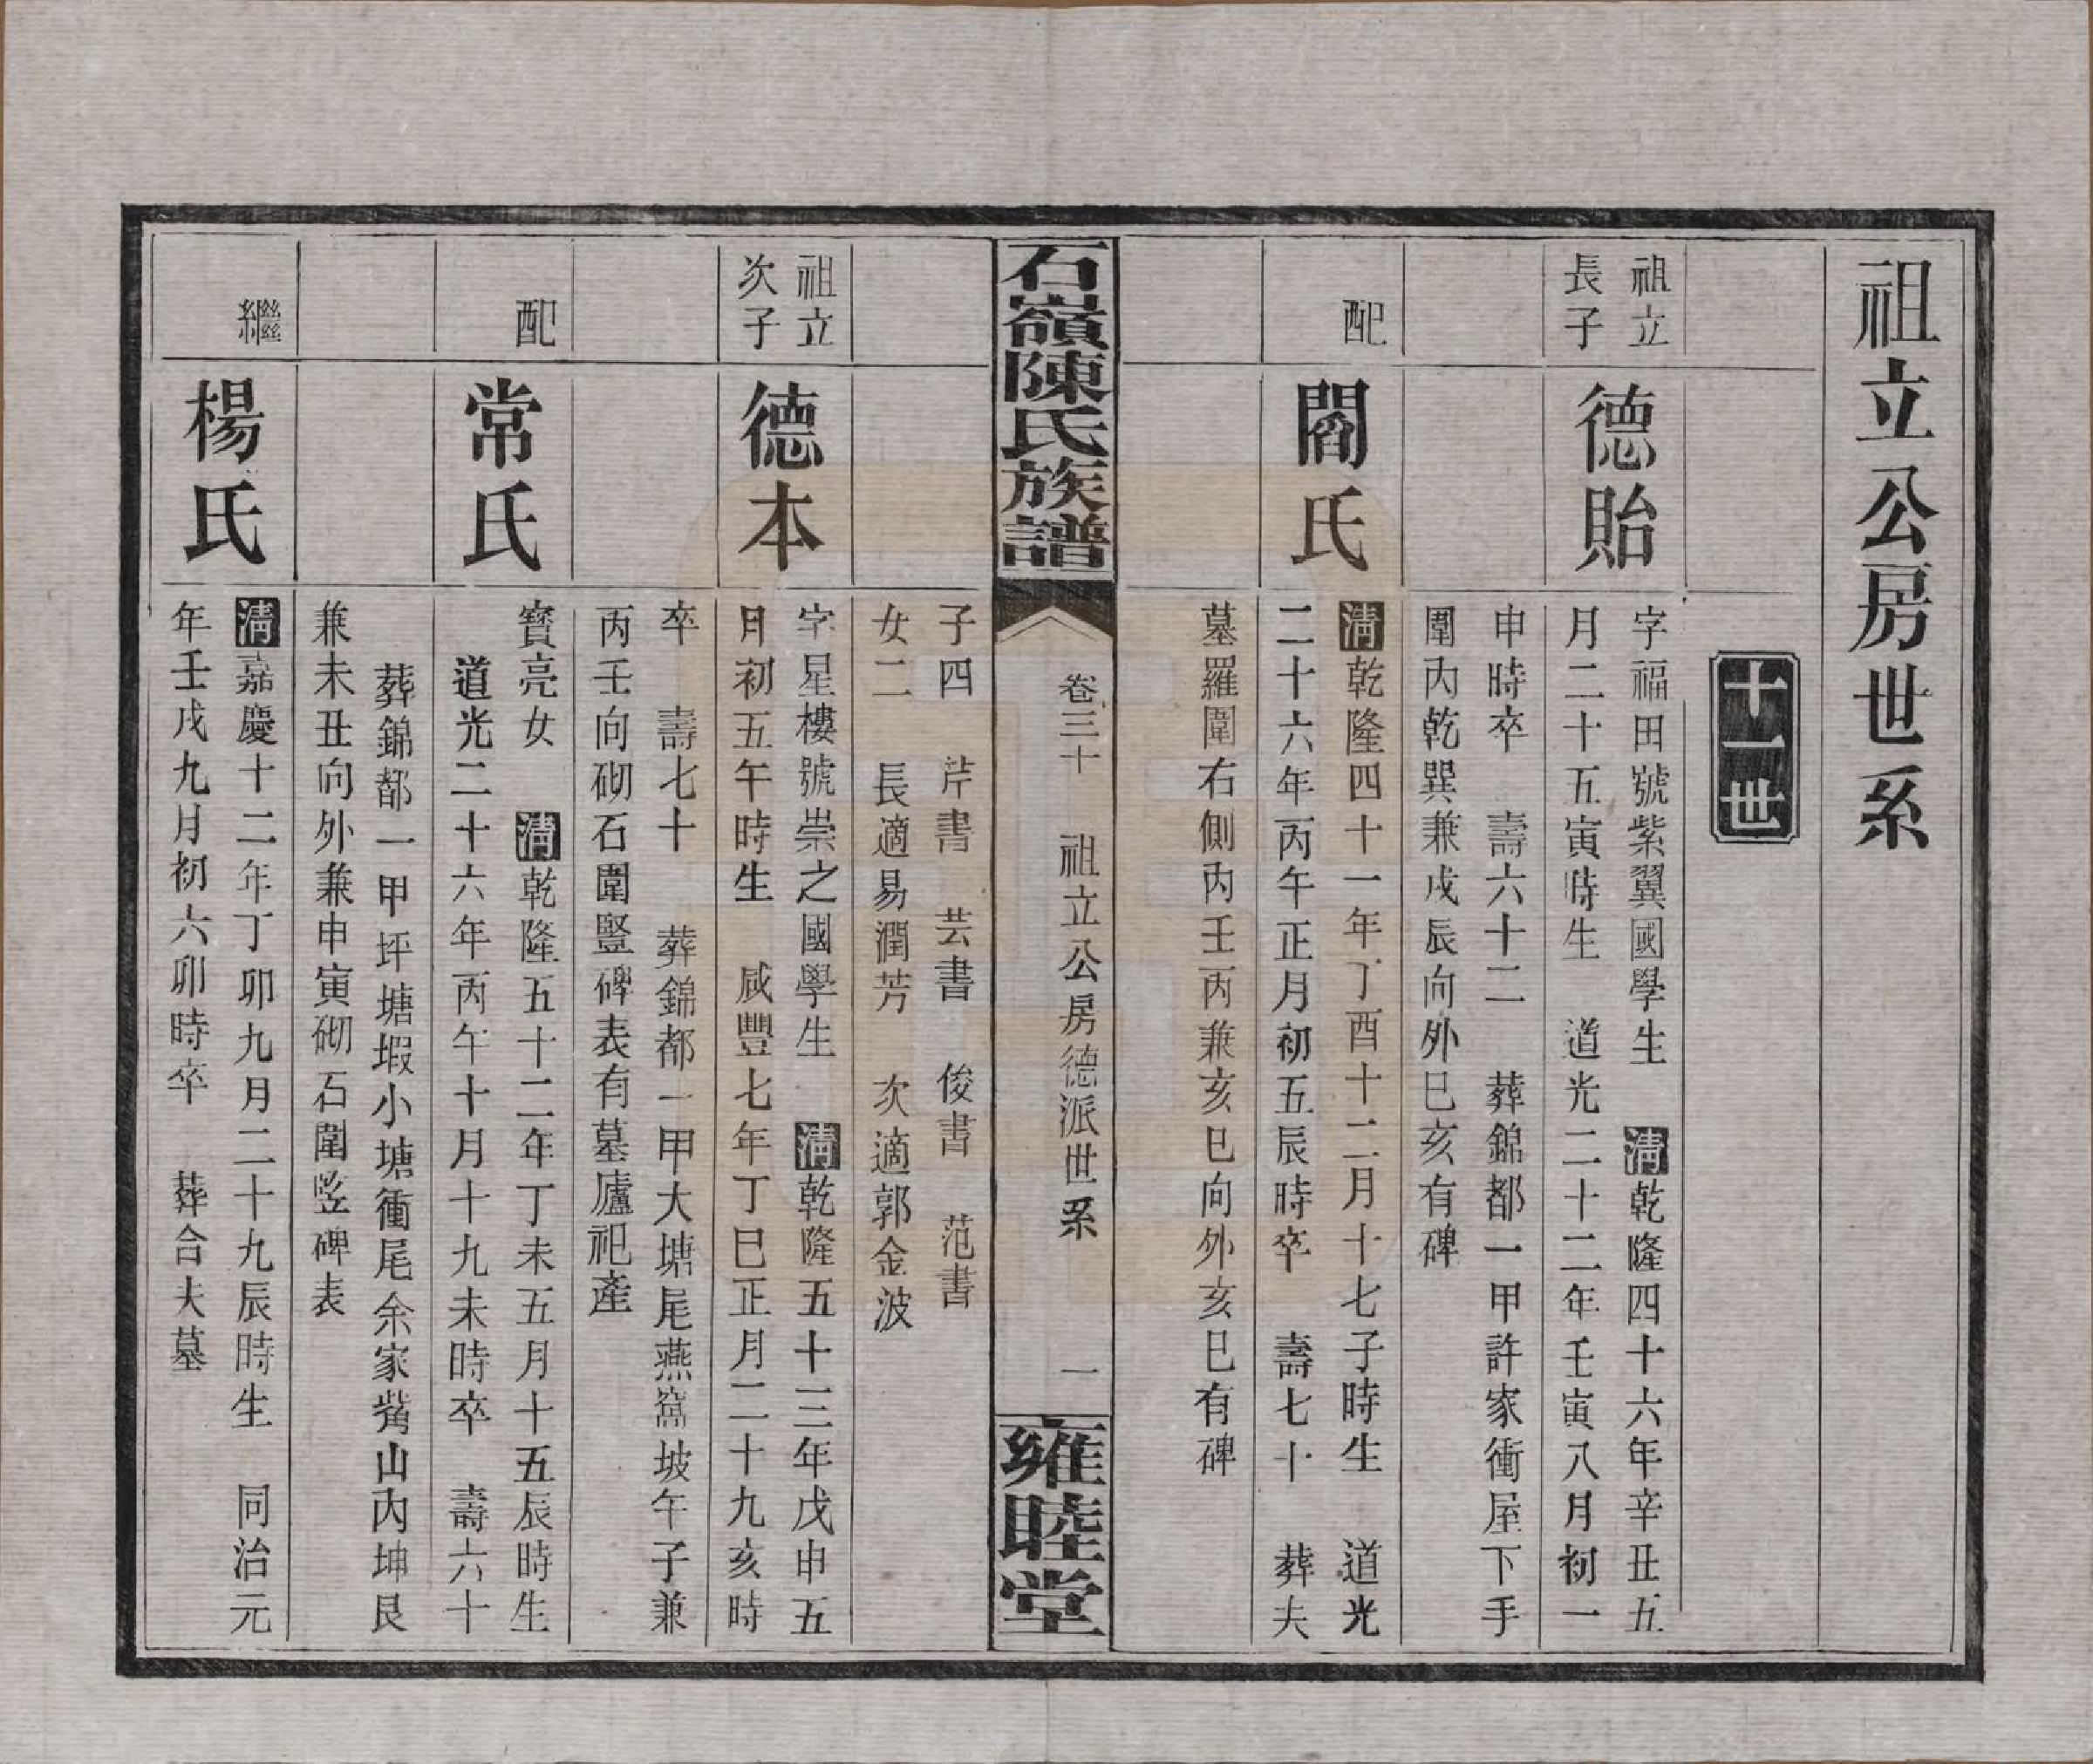 祖立公房世系
十一世
祖立
長子
德貽
字福田號紫翼國學生　清乾隆四十六年辛丑五
月二十五寅時生　道光二十二年壬寅八月初一
申時卒　壽六十二　葬錦都一甲許家衝屋下手
圍內乾巽兼戌辰向外巳亥有碑
配
閻氏
清乾隆四十一年丁酉十二月十七子時生　道光
二十六年丙午正月初五辰時卒　壽七十　葬夫
墓羅圍右側內壬丙兼亥巳向外亥巳有碑
石嶺陳氏族譜
卷三十　祖立公房德派世系　一
雍睦堂
子四　芹書　芸書　俊書　范書
女二　長適易潤芳　次適郭金波
祖立
次子
德本
字星樓號崇之國學生　清乾隆五十三年戊申五
月初五午時生　咸豐七年丁巳正月二十九亥時
卒　壽七十　葬錦都一甲大塘尾燕窩坡午子兼
丙壬向砌石圍豎碑表有墓廬祀產
配
常氏
寶亮女　清乾隆五十二年丁未五月十五辰時生
道光二十六年丙午十月十九未時卒　壽六十
葬錦都一甲坪塘塅小塘衝尾余家觜山內坤艮
兼未丑向外兼申寅砌石圍竖碑表
繼
楊氏
清嘉慶十二年丁卯九月二十九辰時生　同治元
年壬戌九月初六卯時卒　葬合夫墓